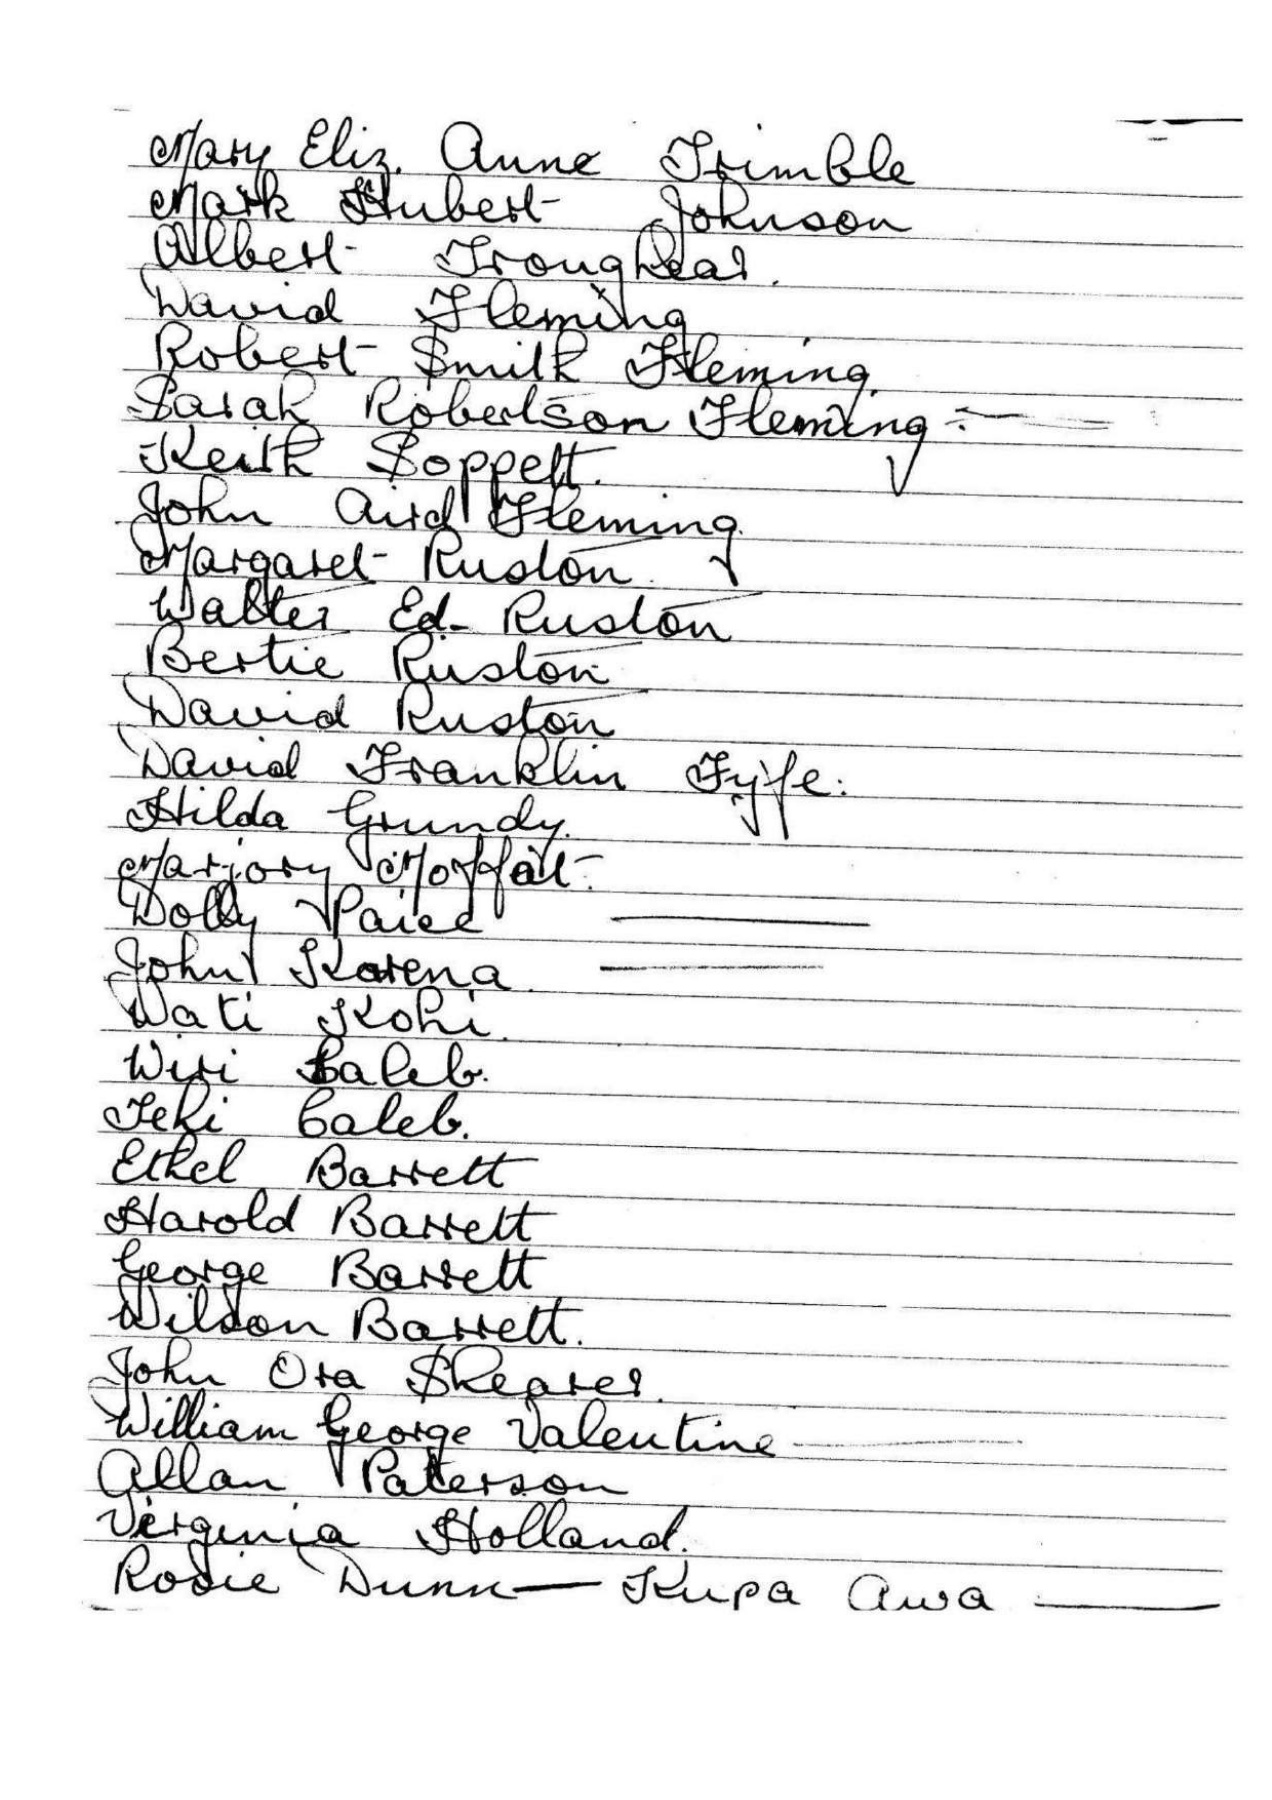 Mary Eliz. Anne Trimble
Mark Hubert Johnson
Albert Troughear.
David Fleming
Robert Smith Fleming
Sarah Robertson Fleming
Keith Soppett.
John Aird Fleming.
Margaret Ruston.
Walter Ed. Ruston
Bertie Ruston
David Ruston
David Franklin Fyfe.
Hilda Grundy.
Marjory Moffatt.
Dolly Paice
John Karena
Wati Kohi.
Wiri Caleb.
Teki Caleb.
Ethel Barrett
Harold Barrett
George Barrett
Wilson Barrett.
John Ora Shearer.
William George Valentine
Allan Paterson
Virginia Holland.
Rosie Dunn — Kupa Awa —